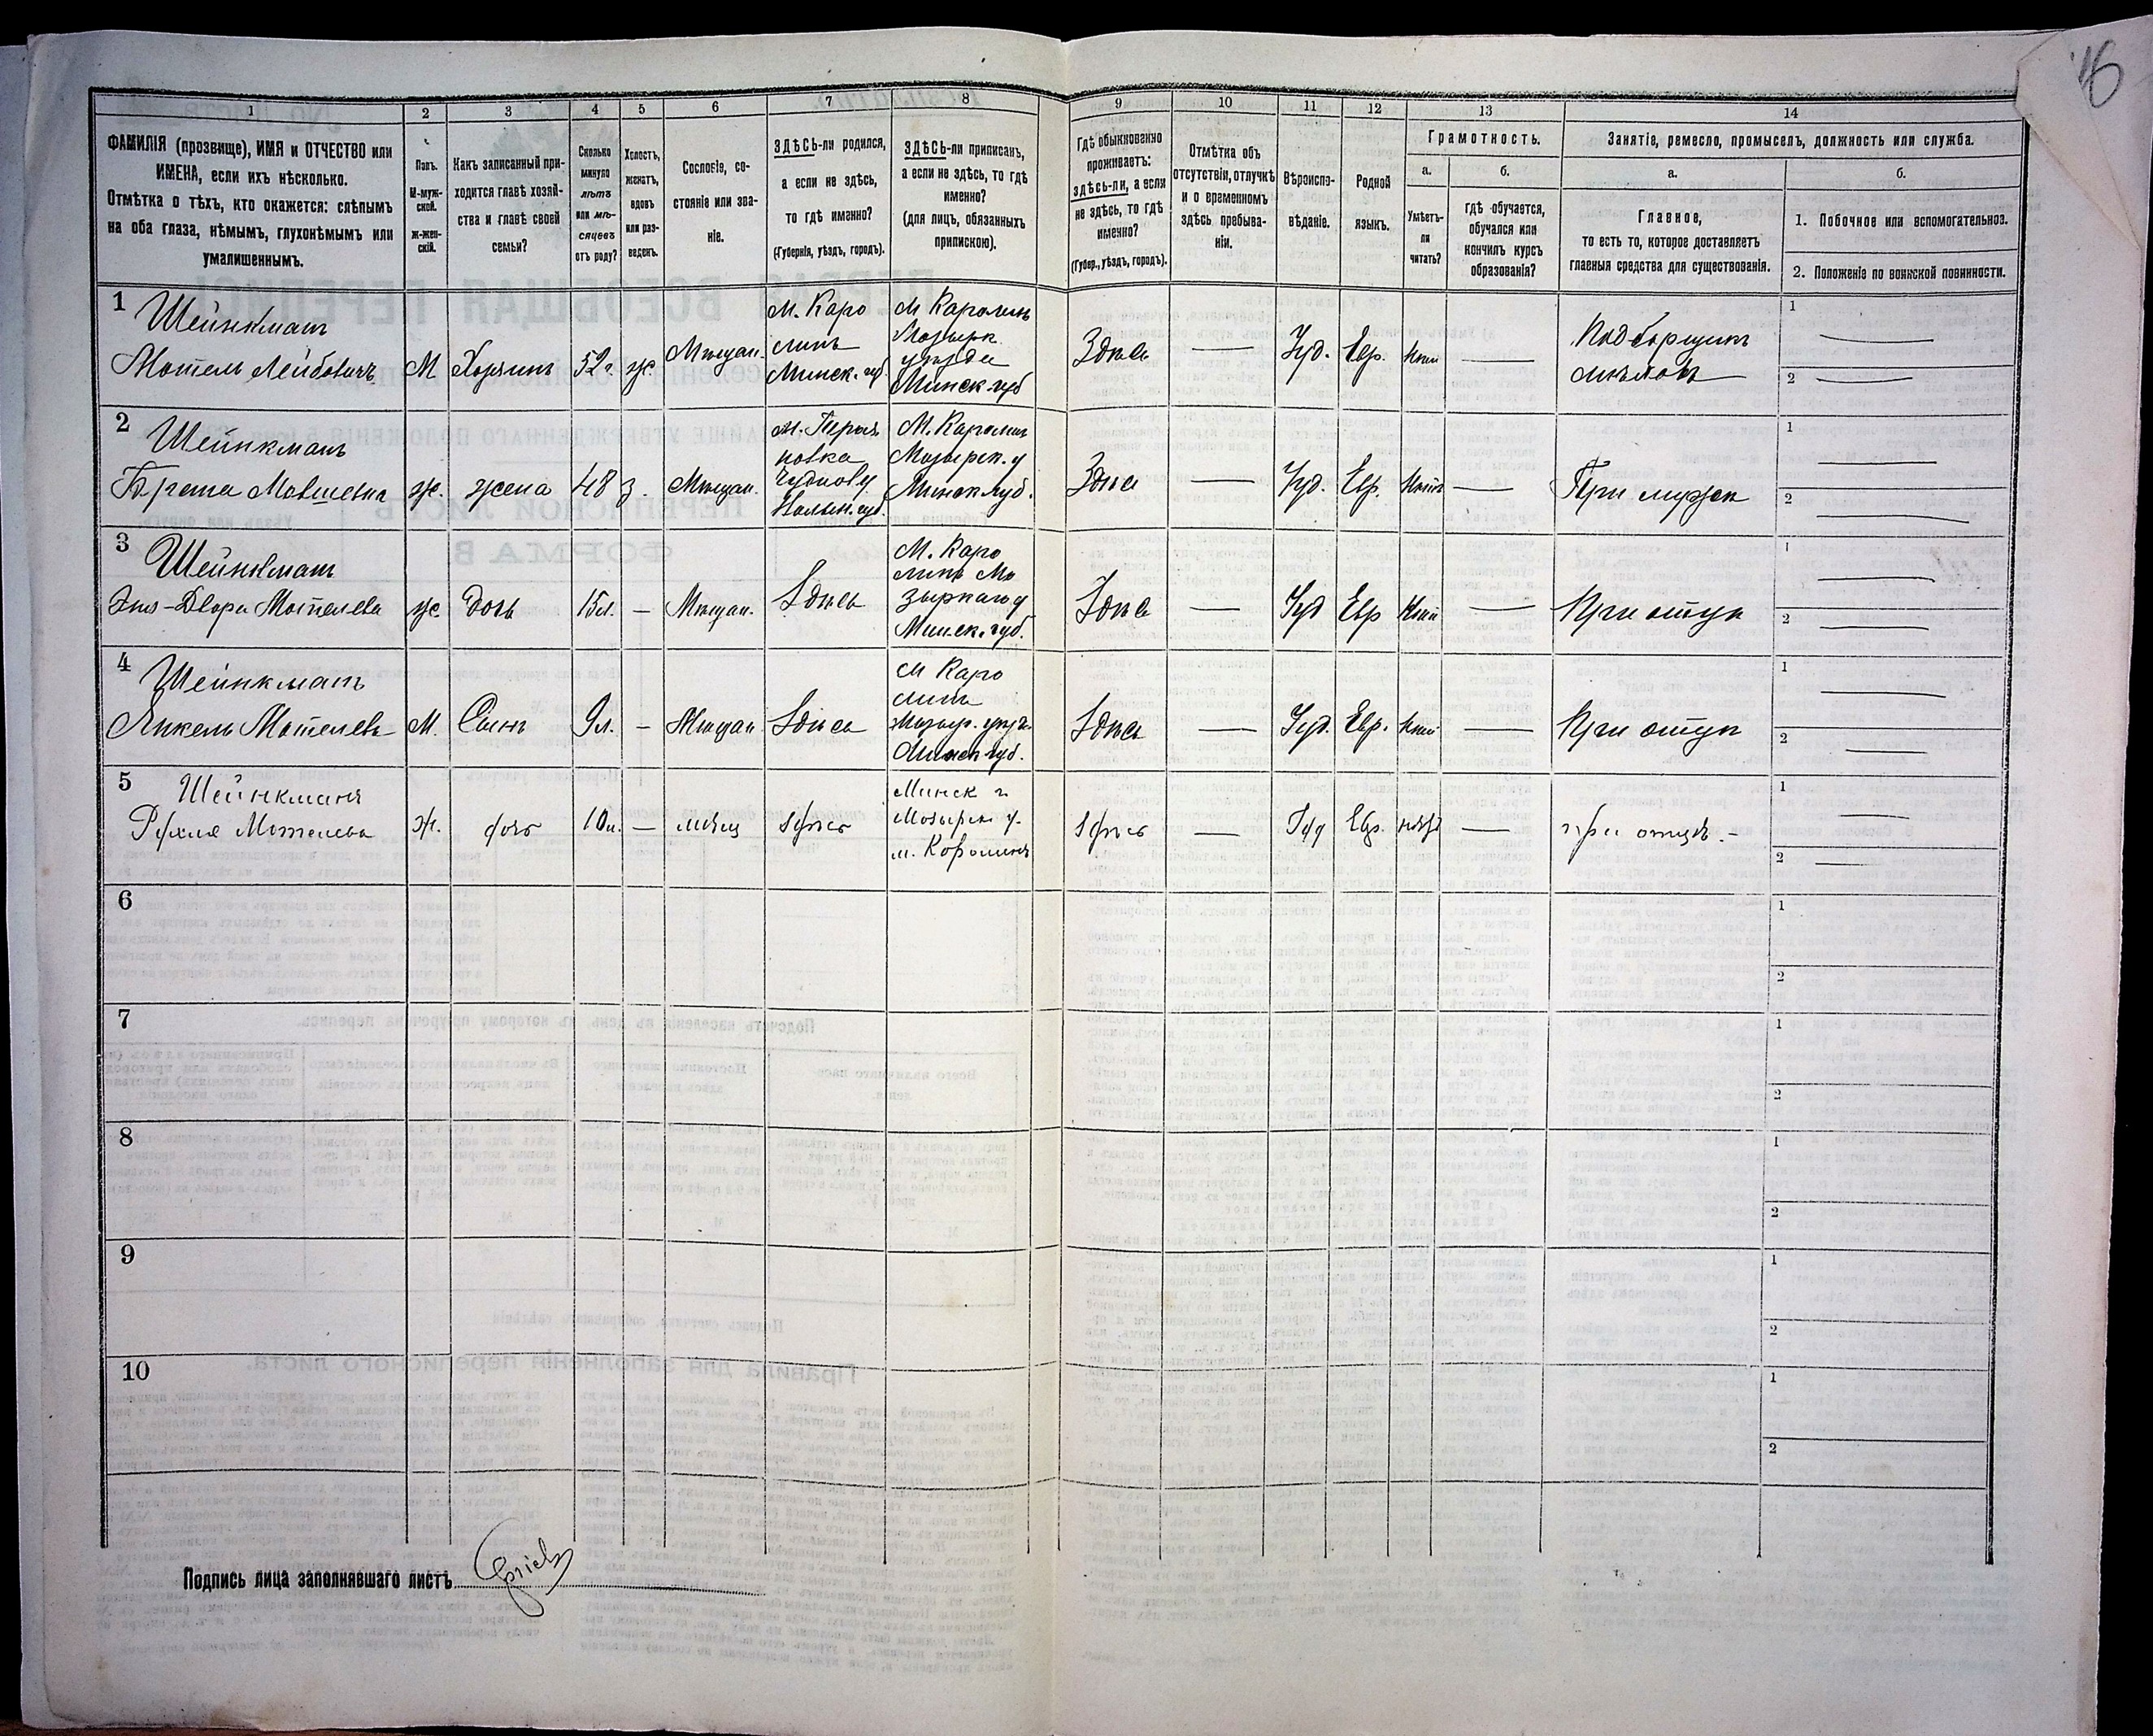 16
1
2
3
4
5
6
7
8
9
10
11
12
13
14
ФАМИЛІЯ (прозвище), ИМЯ и ОТЧЕСТВО или
ИМЕНА, если ихъ нѣсколько.
Отмѣтка о тѣхъ, кто окажется: слѣпымъ
на оба глаза, нѣмымъ, глухонѣмымъ или
умалишеннымъ.
Полъ.
М-муж-
ской.
ж-жен-
скій.
Какъ записанный при-
ходится главѣ хозяй-
ства и главѣ своей
семьи?
Сколько
минуло
лѣтъ
или мѣ-
сяцевъ
отъ роду?
Холостъ,
женатъ,
вдовъ
или раз-
веденъ.
Сословіе, со-
стояніе или зва-
ніе.
ЗДѢСЬ-ли родился,
а если не здѣсь,
то гдѣ именно?
(Губернія, уѣздъ, городъ).
ЗДѢСЬ-ли приписанъ,
а если не здѣсь, то гдѣ
именно?
(для лицъ, обязанныхъ
припискою).
Гдѣ обыкновенно
проживаетъ:
здѣсь-ли, а если
не здѣсь, то гдѣ
именно?
(Губер., уѣздъ, городъ).
Отмѣтка объ
отсутствіи, отлучкѣ
и о временномъ
здѣсь пребыва-
ніи.
Вѣроиспо-
вѣданіе.
Родной
языкъ.
Грамотность.
а.
Умѣетъ-
ли
читать?
б.
гдѣ обучается,
обучался или
кончилъ курсъ
образованія?
Занятіе, ремесло, промыселъ, должность или служба.
а.
Главное,
то есть то, которое доставляетъ
главныя средства для существованія.
б.
1. Побочное или вспомогательное.
2. Положеніе по воинской повинности.
1
Шейнкманъ
Мотель Лейбовичъ
М
Хозяинъ
52 г.
ж.
Мѣщан.
М. Каро
линъ
Минск. губ.
М Каролинъ
Мозырк.
уѣзда
Минск. губ
Здѣсь
—
Іуд.
Евр.
Нѣтъ
—
Подборщикъ
1 —
2 —
2
Шейнкманъ
Мовшевна
ж.
жена
48
з.
Мѣщан.
Волын. губ.
М. Каролинъ
Мозырск. у
Минск. губ.
Здѣсь
—
Іуд.
Евр.
Нѣтъ
—
При мужѣ
1 —
2 —
3
Шейнкманъ
Двора Мотелева
ж.
дочь
15 л.
—
Мѣщан.
Здѣсь
М. Каро
линъ Мо
зырскаго у
Минск. губ.
Здѣсь
—
Іуд
Евр
Нѣтъ
—
При отцѣ
1 —
2 —
4
Шейнкманъ
Янкель Мотелевъ
М.
Сынъ
9 л.
—
Мѣщан.
Здѣсь
М Каро
линъ
Мозыр. уѣзд.
Минск губ.
Здѣсь
—
Іуд.
Евр.
Нѣтъ
—
При отцѣ
1 —
2 —
5
Шейнкманъ
Мотелева
ж.
дочь
—
мѣщ
здѣсь
Минск г.
Мозырск у.
м. Королинъ
здѣсь
—
Іуд
Евр.
—
при отцѣ. -
1 —
2 —
6
1
2
7
1
2
8
1
2
9
1
2
10
1
2
Подпись лица заполнявшаго листъ